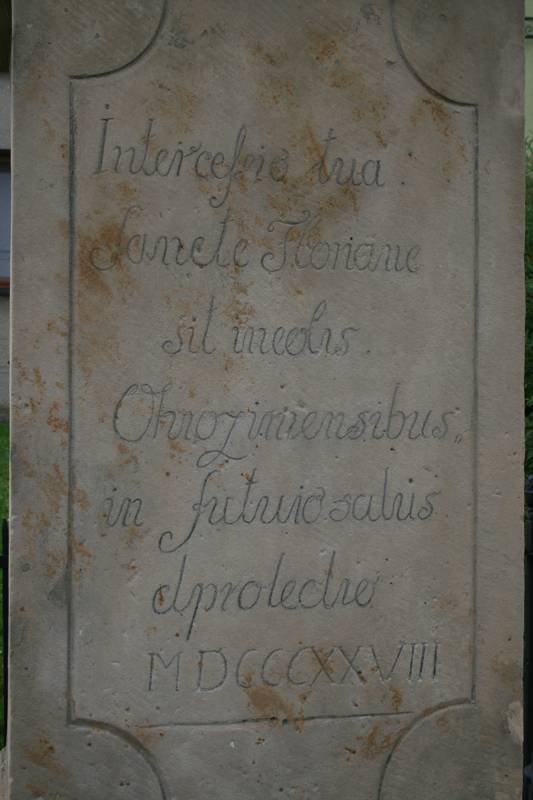 Intercessio tua.
Sancte Floriane
sit incolis.
Ohrozimensibus„
in futuro salus.
et protectio
MDCCCXXVIII